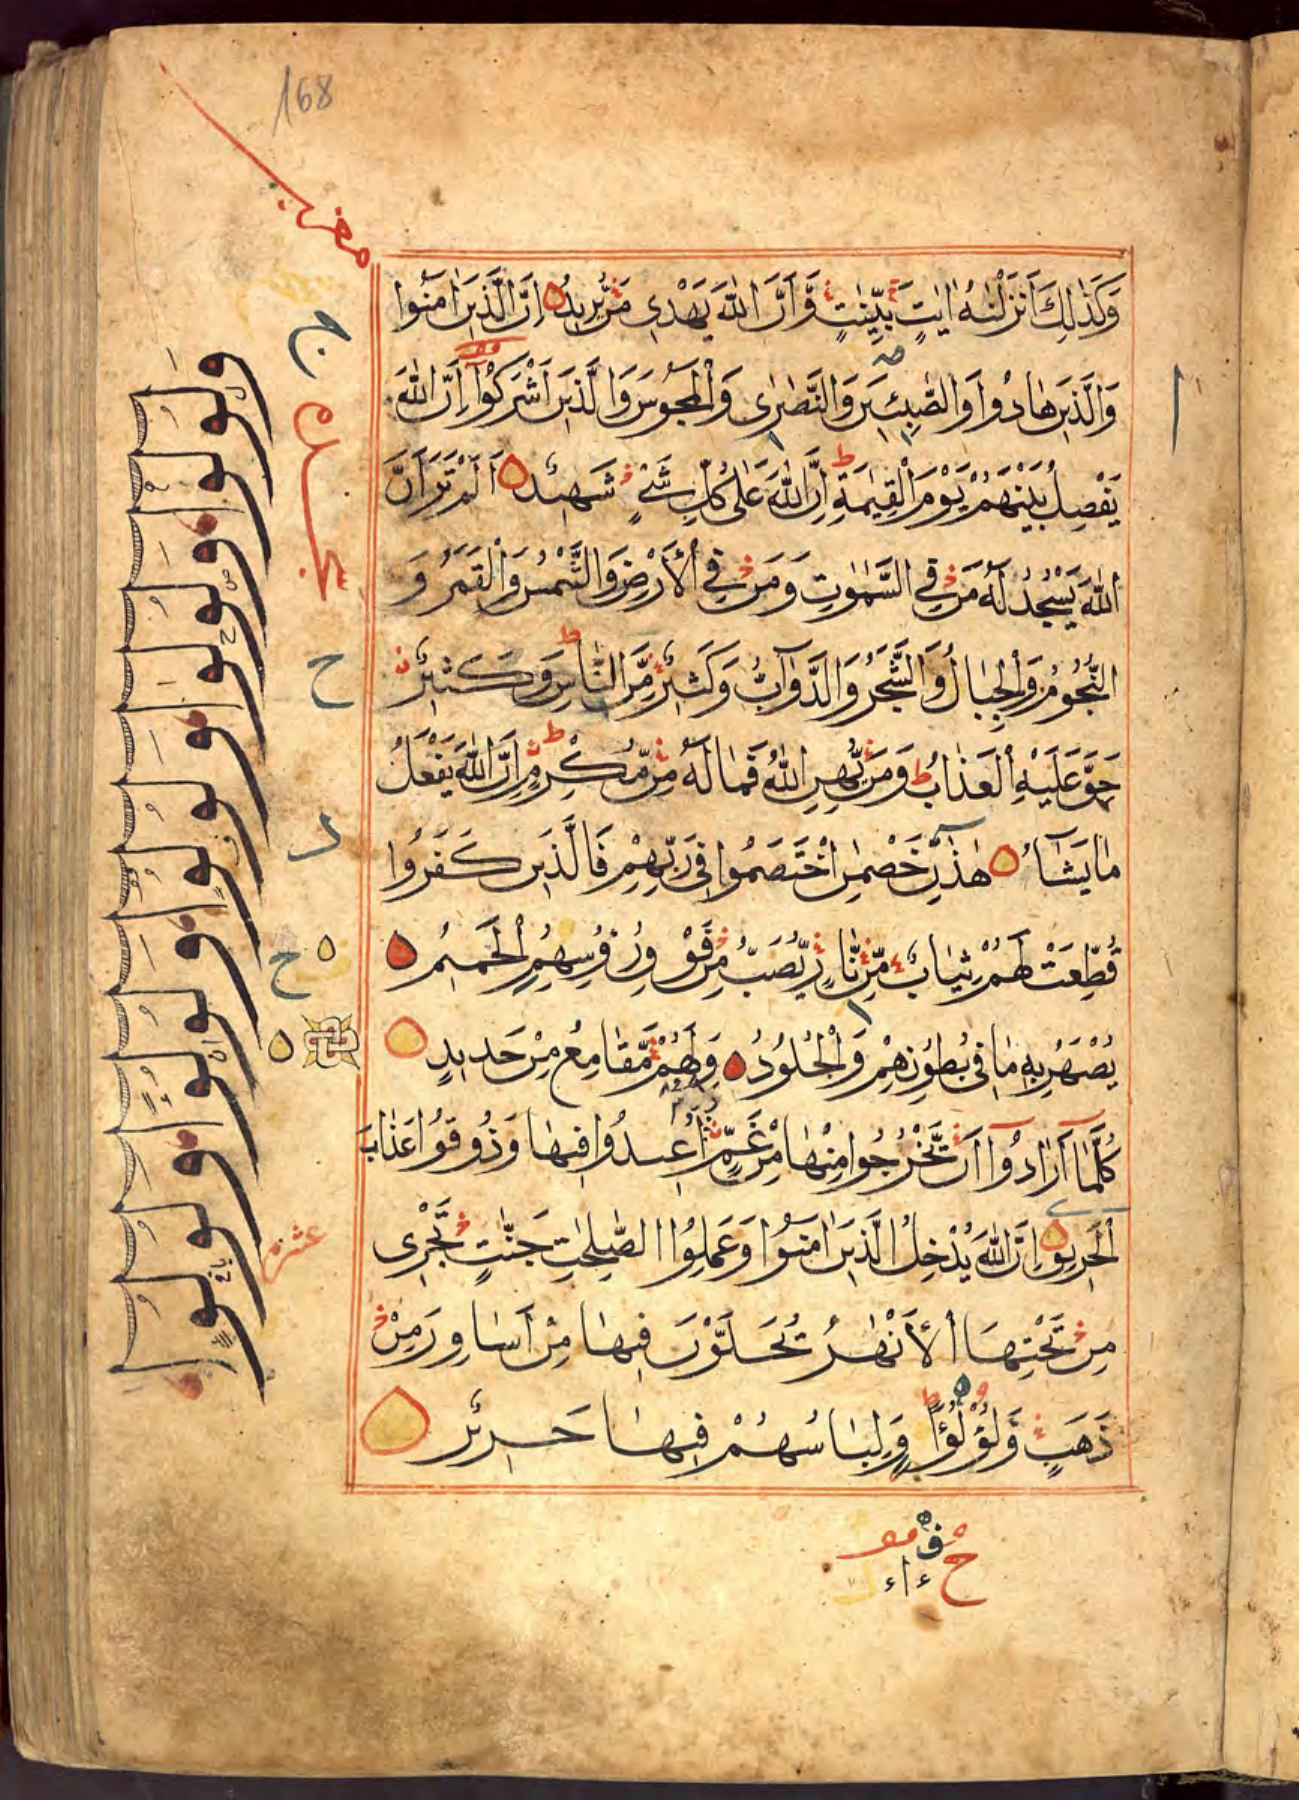 168
مغربى
وَكَذٰلِكَ اَنْزَلْنٰهُ اٰيٰتٍ بَيِّنٰتٍ وَّاَنَّ اللّٰهَ يَهْدِى مَنْ يُّرِيْدُ اِنَّ الَّذِيْنَ اٰمَنُوْا
وَالَّذِيْنَ هَادُوْا وَالصّٰبِئِيْنَ وَالنَّصٰرٰى وَالْمَجُوْسَ وَالَّذِيْنَ اَشْرَكُوْٓا اِنَّ اللّٰهَ
يَفْصِلُ بَيْنَهُمْ يَوْمَ الْقِيٰمَةِ ط اِنَّ اللّٰهَ عَلٰى كُلِّ شَىْءٍ شَهِيْدٌ اَلَمْ تَرَ اَنَّ
اللّٰهَ يَسْجُدُ لَهٗ مَنْ فِى السَّمٰوٰتِ وَمَنْ فِى الْاَرْضِ وَالشَّمْسُ وَالْقَمَرُ وَ
النُّجُوْمُ وَالْجِبَالُ وَالشَّجَرُ وَالدَّوَآبُّ وَكَثِيْرٌ مِّنَ النَّاسِ ط وَكَثِيْرٌ
حَقَّ عَلَيْهِ الْعَذَابُ ط وَمَنْ يُّهِنِ اللّٰهُ فَمَا لَهٗ مِنْ مُّكْرِمٍ ط اِنَّ اللّٰهَ يَفْعَلُ
مَا يَشَآءُ هٰذٰنِ خَصْمٰنِ اخْتَصَمُوْا فِىْ رَبِّهِمْ فَالَّذِيْنَ كَفَرُوْا
قُطِّعَتْ لَهُمْ ثِيَابٌ مِّنْ نَّارٍ يُّصَبُّ مِنْ فَوْقِ رُءُوْسِهِمُ الْحَمِيْمُ
يُصْهَرُ بِهٖ مَا فِىْ بُطُوْنِهِمْ وَالْجُلُوْدُ وَلَهُمْ مَّقَامِعُ مِنْ حَدِيْدٍ
كُلَّمَآ اَرَادُوْٓا اَنْ يَّخْرُجُوْا مِنْهَا مِنْ غَمٍّ اُعِيْدُوْا فِيْهَا وَذُوْقُوْا عَذَابَ
الْحَرِيْقِ اِنَّ اللّٰهَ يُدْخِلُ الَّذِيْنَ اٰمَنُوْا وَعَمِلُوا الصّٰلِحٰتِ جَنّٰتٍ تَجْرِىْ
مِنْ تَحْتِهَا الْاَنْهٰرُ يُحَلَّوْنَ فِيْهَا مِنْ اَسَاوِرَ مِنْ
ذَهَبٍ وَّلُؤْلُؤًا ط وَلِبَاسُهُمْ فِيْهَا حَرِيْرٌ
سجده
ح
عشره